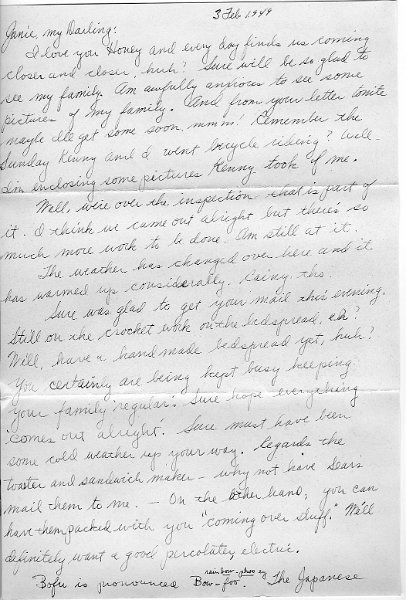 3 Feb 1949
Janie, my Darling:
I love you Honey and every day finds us coming
closer and closer, huh? Sure will be so glad to
see my family. Am awfully anxious to see some
pictures of my family. And from your letter tonite
maybe I'll get some soon, mmm! Remember the
Sunday Kenny and I went bicycle riding? Well -
I'm enclosing some pictures Kenny took of me.
Well, we're over the inspection - that is part of
it. I think we came out alright but there's so
much more work to be done. Am still at it.
The weather has changed over here and it
has warmed up considerably. Rainy, tho.
Sure was glad to get your mail this evening.
Still on the crochet work on the bedspread, eh?
We'll have a handmade bedspread yet, huh?
You certainly are being kept busy keeping
your family "regular". Sure hope everything
"comes out alright". Sure must have been
some cold weather up your way. Regards the
toaster and sandwich maker - why not have Sears
mail them to me. - On the other hand, you can
have them packed with you "coming over stuff". We'll
definitely want a good percolator, electric.
Bofu is pronounced Bow-foo. The Japanese